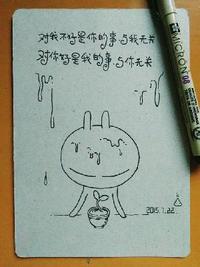 对我不好是你的事.与我无关
对你好是我的事.与你无关
2015.7.22.
MICRON